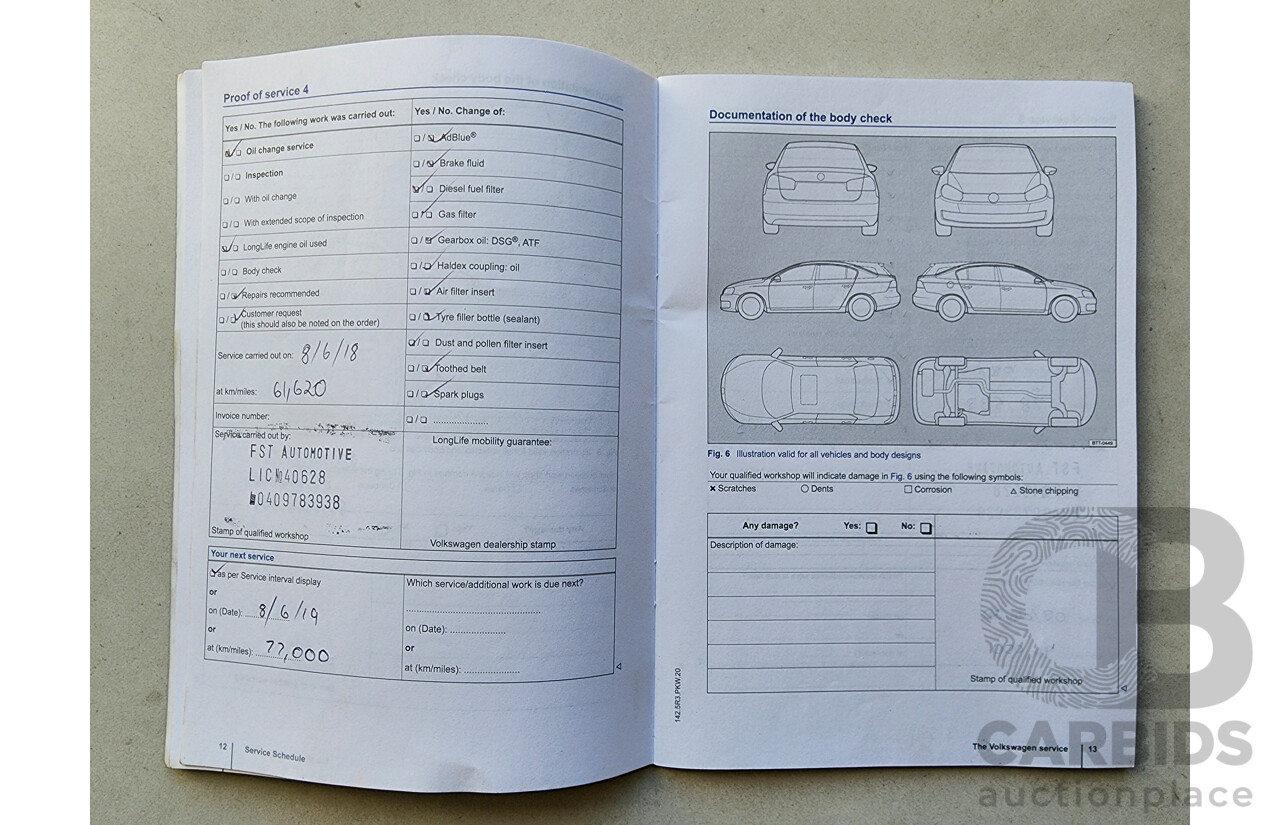 Proof of service 4
Yes / No. The following work was carried out:
Oil change service
Inspection
With oil change
With extended scope of inspection
LongLife engine oil used
Body check
Repairs recommended
Customer request
(this should also be noted on the order)
Service carried out on: 8/6/18
at km/miles: 61,620
Invoice number:
Service carried out by:
FST AUTOMOTIVE
LIC№40628
0409783938
Stamp of qualified workshop
Yes / No. Change of:
AdBlue®
Brake fluid
Diesel fuel filter
Gas filter
Gearbox oil: DSG®, ATF
Haldex coupling: oil
Air filter insert
Tyre filler bottle (sealant)
Dust and pollen filter insert
Toothed belt
Spark plugs
LongLife mobility guarantee:
Volkswagen dealership stamp
Your next service
as per Service interval display
or
on (Date): 8/6/19
or
at (km/miles): 77,000
Which service/additional work is due next?
on (Date):
or
at (km/miles):
12
Service Schedule
Documentation of the body check
BTT-0449
Fig. 6 Illustration valid for all vehicles and body designs
Your qualified workshop will indicate damage in Fig. 6 using the following symbols:
× Scratches ○ Dents □ Corrosion △ Stone chipping
Any damage? Yes: No:
Description of damage:
Stamp of qualified workshop
142.5R3.PKW.20
The Volkswagen service 13
CARBIDS
auctionplace